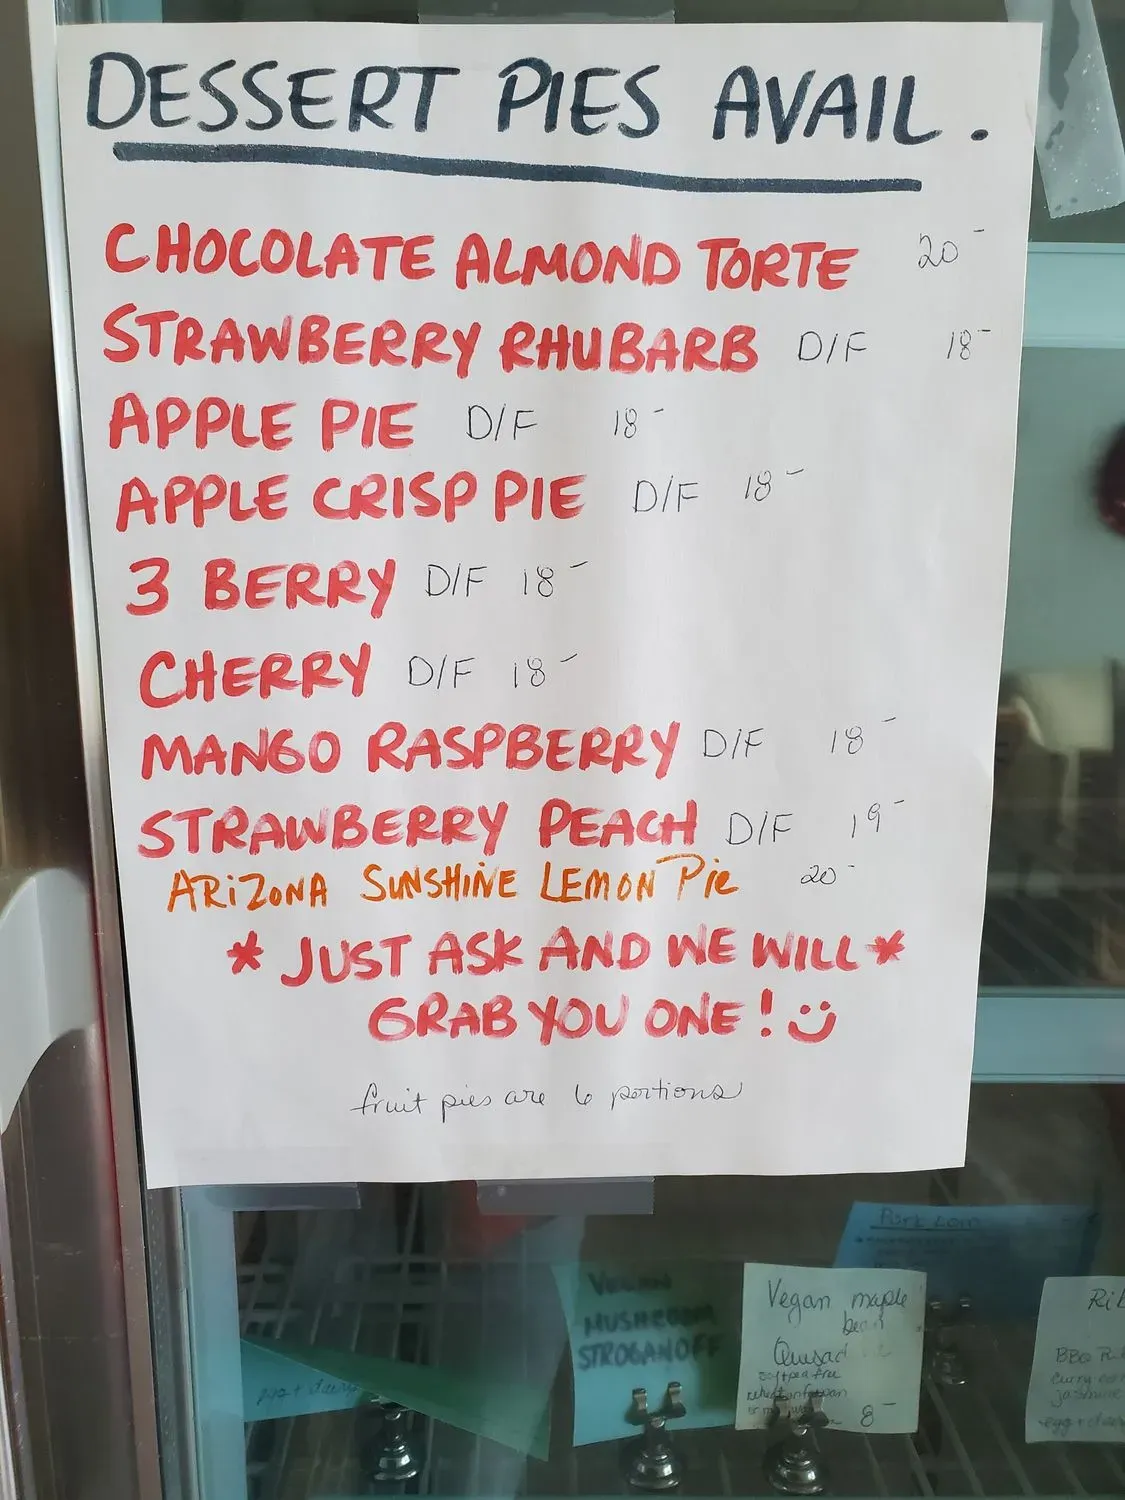 DESSERT PIES AVAIL.
CHOCOLATE ALMOND TORTE 20-
STRAWBERRY RHUBARB D/F 18-
APPLE PIE D/F 18-
APPLE CRISP PIE D/F 18-
3 BERRY D/F 18-
CHERRY D/F 18-
MANGO RASPBERRY D/F 18-
STRAWBERRY PEACH D/F 19-
ARiZONA SUNSHINE LEMON Pie 20-
* JUST ASK AND WE WILL *
GRAB YOU ONE! :)
fruit pies are 6 portions
PORK LOIN
VEGAN
MUSHROOM
STROGANOFF
Vegan maple
bean
8-
BBQ
egg + dairy